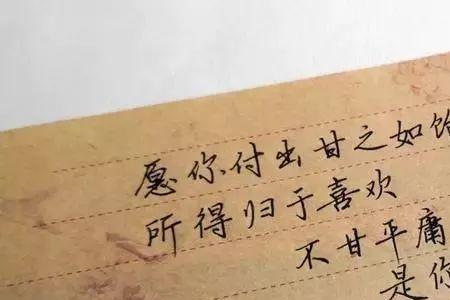 愿你付出甘之如饴
所得归于喜欢
不甘平庸
是你